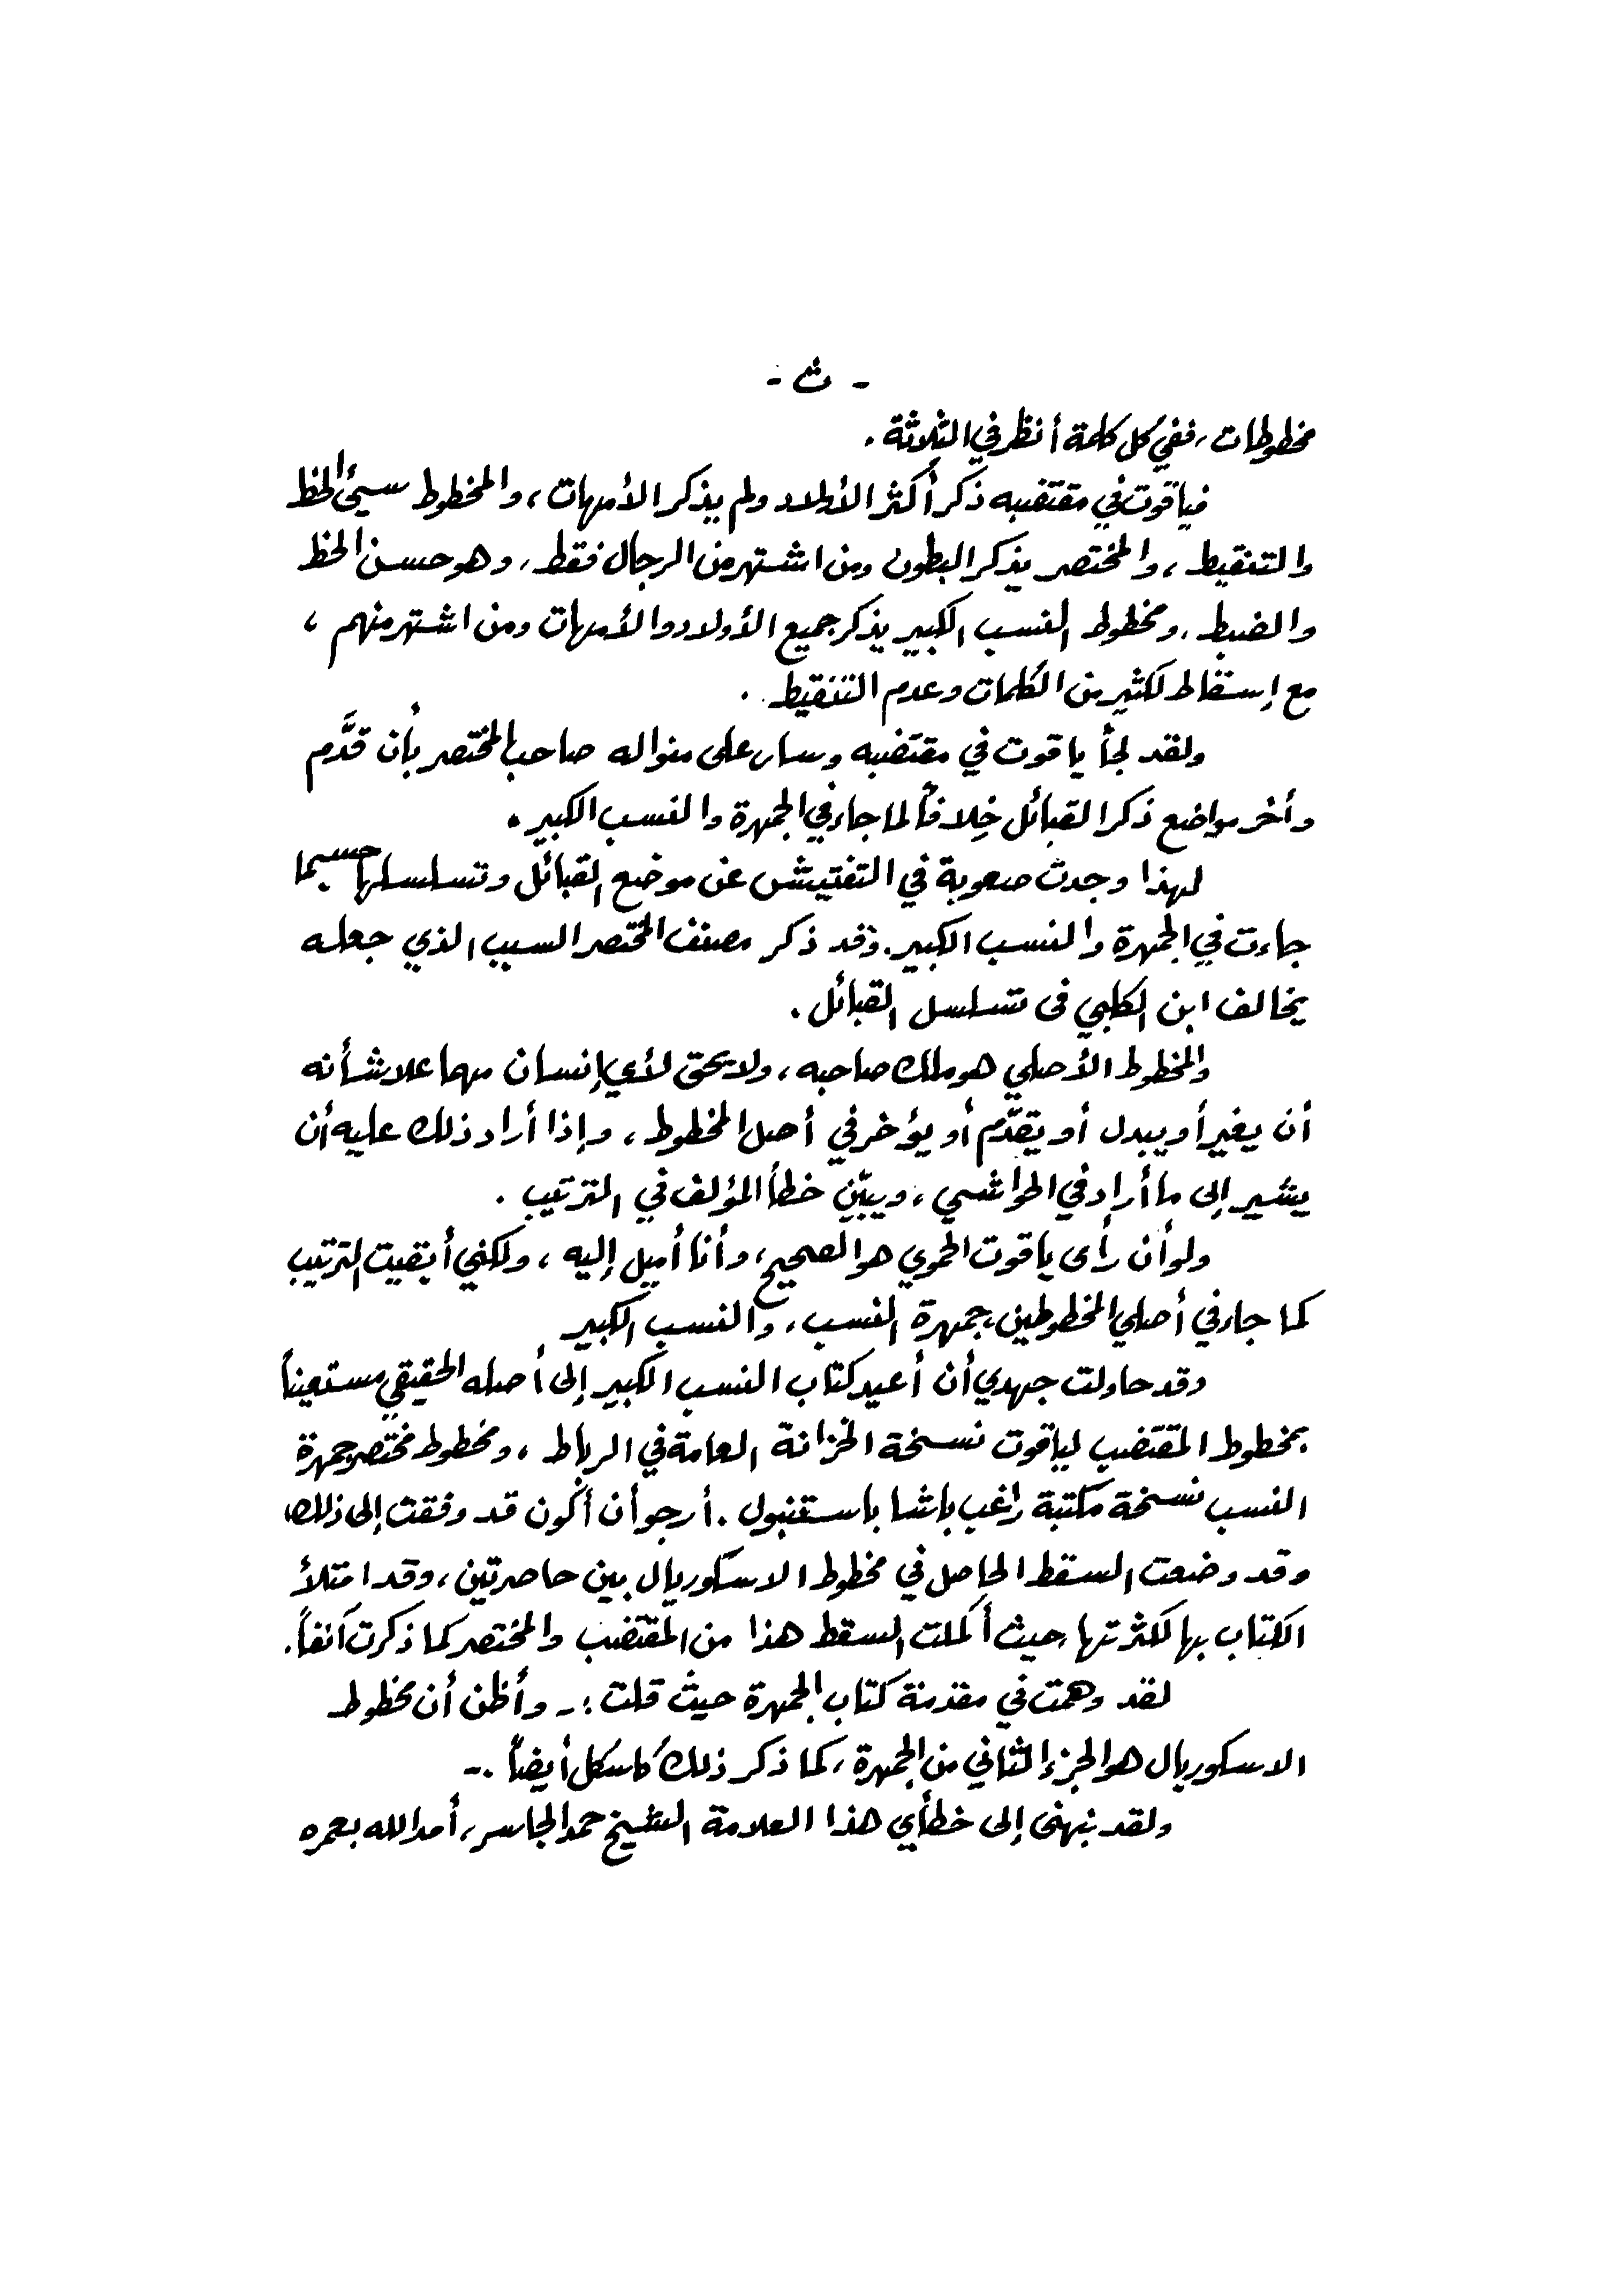 - ث -
مخطوطات، ففي كل كلمة أنظر في الثلاثة.
فياقوت في مقتضبه ذكر أكثر الأولاد ولم يذكر الأمهات، والمخطوط سيئ الخط
والتنقيط، والمختصر يذكر البطون ومن اشتهر من الرجال فقط، وهو حسن الخط
والضبط، ومخطوط النسب الكبير يذكر جميع الأولاد والأمهات ومن اشتهر منهم،
مع إسقاط لكثير من الكلمات وعدم التنقيط.
ولقد لجأ ياقوت في مقتضبه وسار على منواله صاحب المختصر بأن قدَّم
وأخر مواضع ذكر القبائل خِلافاً لما جاء في الجمهرة والنسب الكبير.
لهذا وجدت صعوبة في التفتيش عن موضع القبائل وتسلسلها حسبما
جاءت في الجمهرة والنسب الكبير. وقد ذكر مصنف المختصر السبب الذي جعله
يخالف ابن الكلبي في تسلسل القبائل.
والمخطوط الأصلي هو ملك صاحبه، ولا يحق لأي إنسان مهما علا شأنه
أن يغير أو يبدل أو يقدّم أو يؤخر في أصل المخطوط، وإذا أراد ذلك عليه أن
يشير إلى ما أراد في الحواشي، ويبيّن خطأ المؤلف في الترتيب.
ولو أن رأى ياقوت الحموي هو الصحيح، وأنا أميل إليه، ولكني أبقيت الترتيب
كما جاء في أصلي المخطوطين، جمهرة النسب، والنسب الكبير
وقد حاولت جهدي أن أعيد كتاب النسب الكبير إلى أصله الحقيقي مستعيناً
بمخطوط المقتضب لياقوت نسخة الخزانة العامة في الرباط، ومخطوط مختصر جمهرة
النسب نسخة مكتبة راغب باشا باستنبول. أرجو أن أكون قد وفقت إلى ذلك،
وقد وضعت السقط الحاصل في مخطوط الاسكوريال بين حاصرتين، وقد امتلأ
الكتاب بها لكثرتها، حيث أكملت السقط هذا من المقتضب والمختصر كما ذكرت آنفاً.
لقد وهمت في مقدمة كتاب الجمهرة حيث قلت :- وأظن أن مخطوط
الاسكوريال هو الجزء الثاني من الجمهرة، كما ذكر ذلك كاسكل أيضاً .-
ولقد نبهنى إلى خطأي هذا العلامة الشيخ حمد الجاسر، أمد الله بعمره